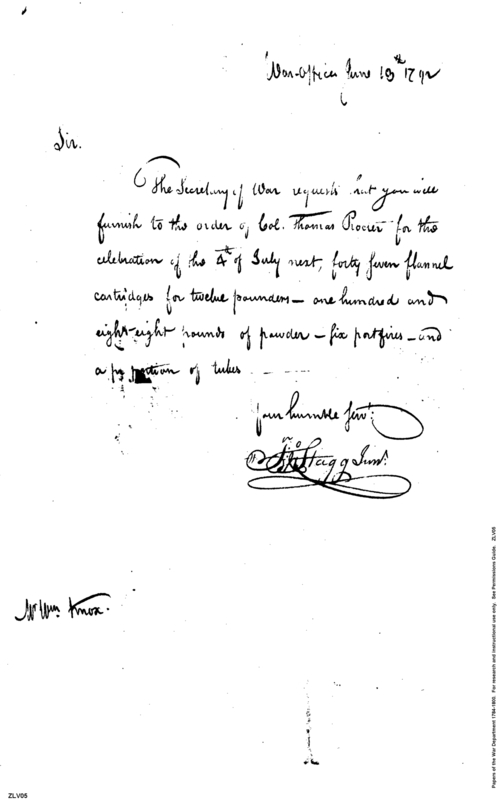 War-Office June 18th 1792
Sir.
The Secretary of War requests that you will
furnish to the order of Col. Thomas Procter for the
celebration of the 4th of July next, forty seven flannel
cartridges for twelve pounders — one hundred and
eighty-eight pounds of powder — six portfires — and
a proportion of tubes —
Your humble Servt.
Jno Stagg Junr.
Mr Wm Knox.
Papers of the War Department 1784-1800. For research and instructional use only. See Permissions Guide. ZLV05
ZLV05